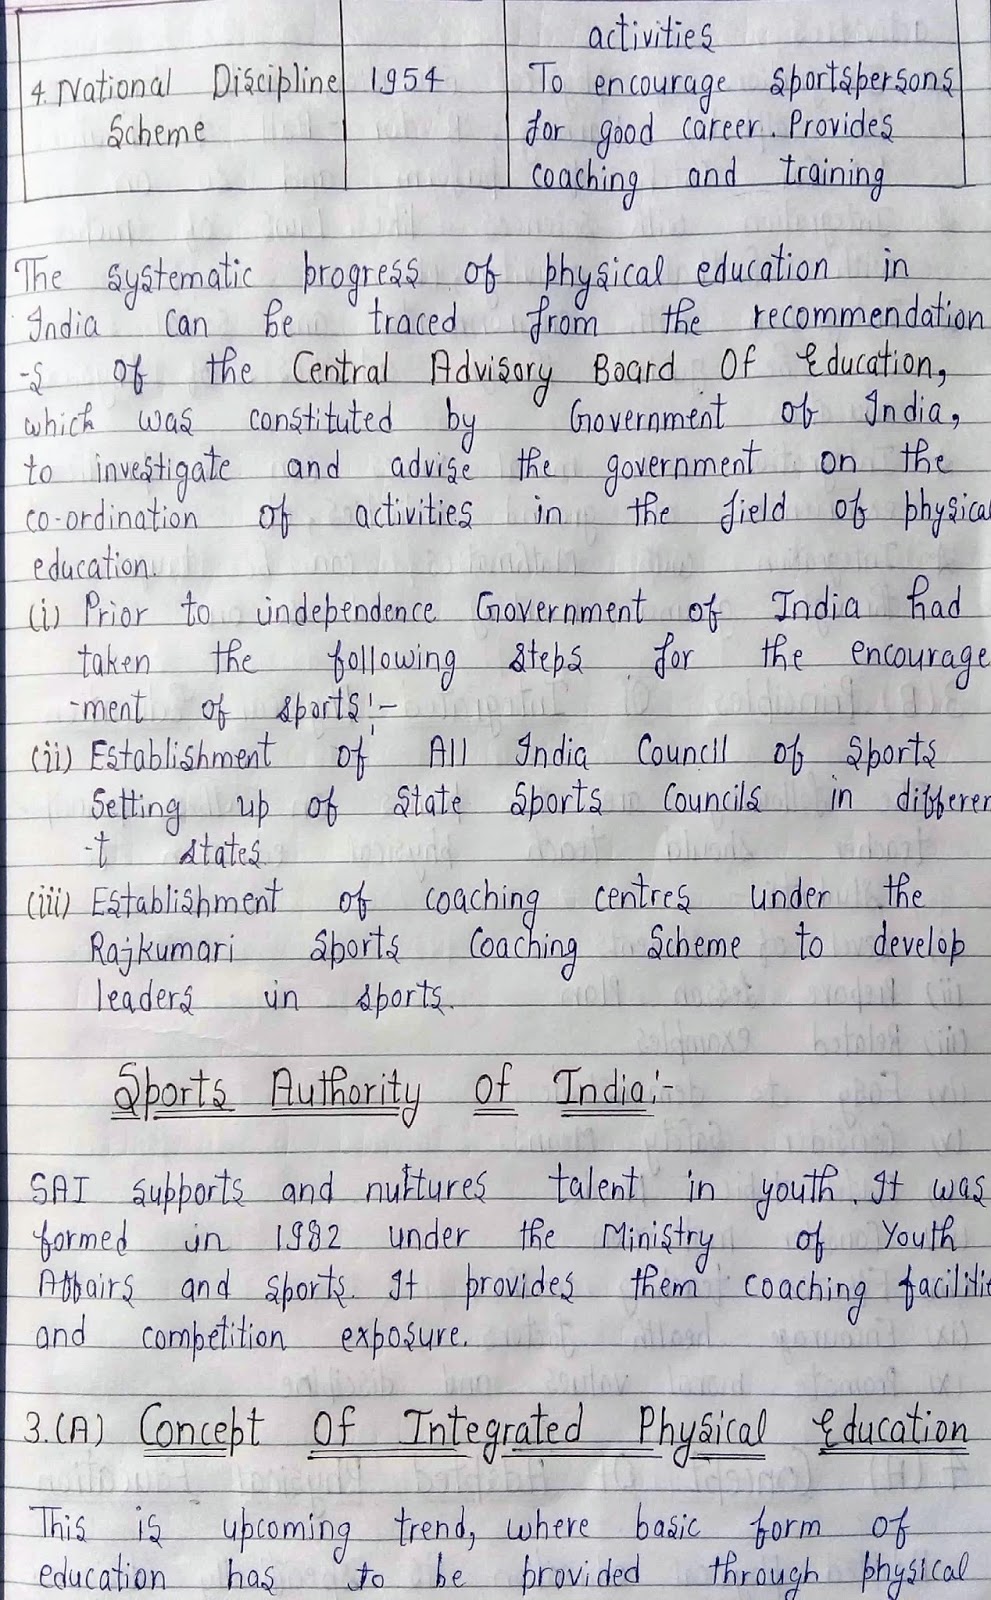 activities
4. National Discipline 1954 To encourage sportspersons
Scheme for good career. Provides
coaching and training
The systematic progress of physical education in
India can be traced from the recommendation
-s of the Central Advisory Board Of Education,
which was constituted by Government of India,
to investigate and advise the government on the
co-ordination of activities in the field of physical
education.
(i) Prior to independence Government of India had
taken the following steps for the encourage
-ment of sports:-
(ii) Establishment of All India Council of Sports
Setting up of State Sports Councils in differen
-t states
(iii) Establishment of coaching centres under the
Rajkumari Sports Coaching Scheme to develop
leaders in sports.
Sports Authority Of India:-
SAI supports and nurtures talent in youth. It was
formed in 1982 under the Ministry of Youth
Affairs and sports. It provides them coaching faciliti
and competition exposure.
3.(A) Concept Of Integrated Physical Education
This is upcoming trend, where basic form of
education has to be provided through physical